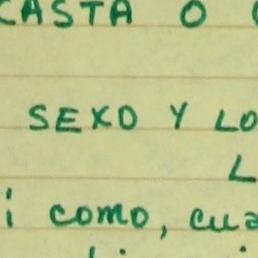 CASTA O
SEXO Y LO
L
i como, cua